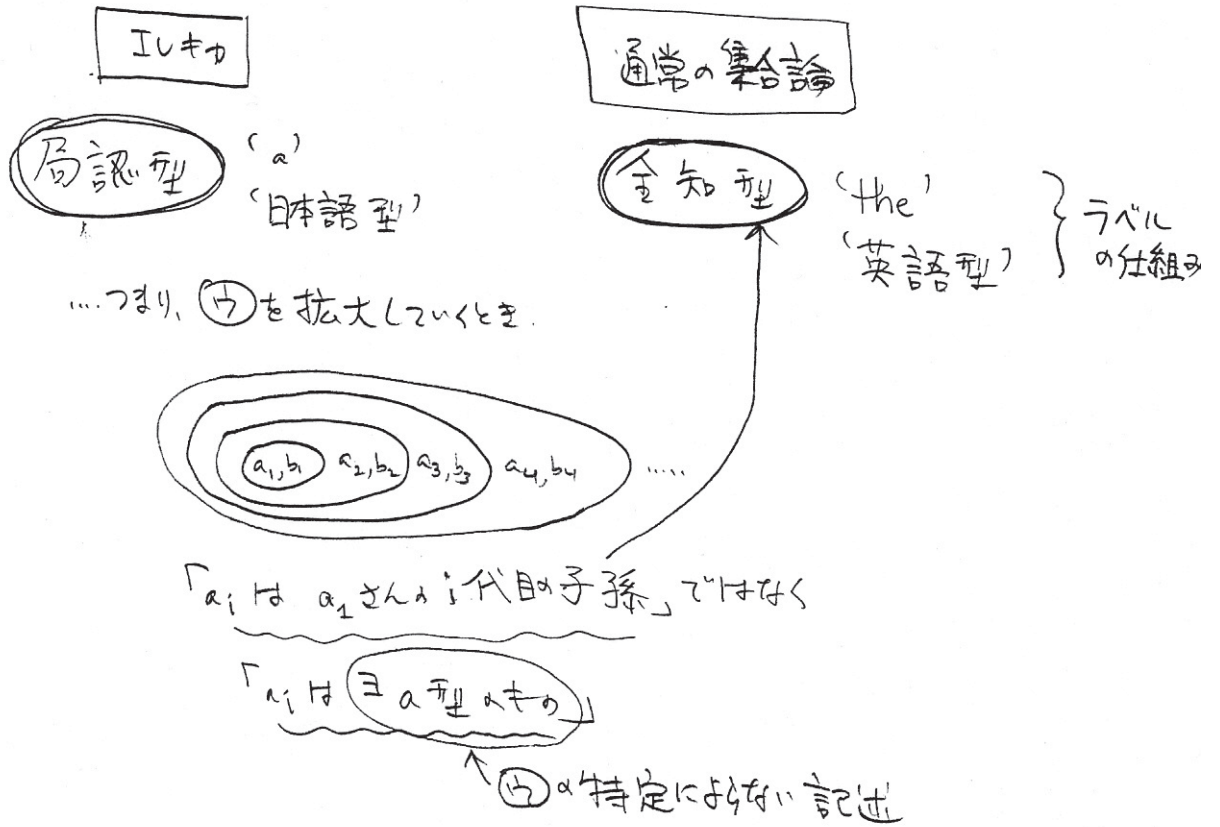 エレキカ
通常の集合論
局認型 'a'
'日本語型'
全知型 'the'
'英語型'
ラベル
の仕組み
....つまり、ウを拡大していくとき.
a₁,b₁ a₂,b₂ a₃,b₃ a₄,b₄ .....
「aᵢ は a₁さんの i代目の子孫」ではなく
「aᵢ は ∃a型のもの」
ウの特定によらない記述